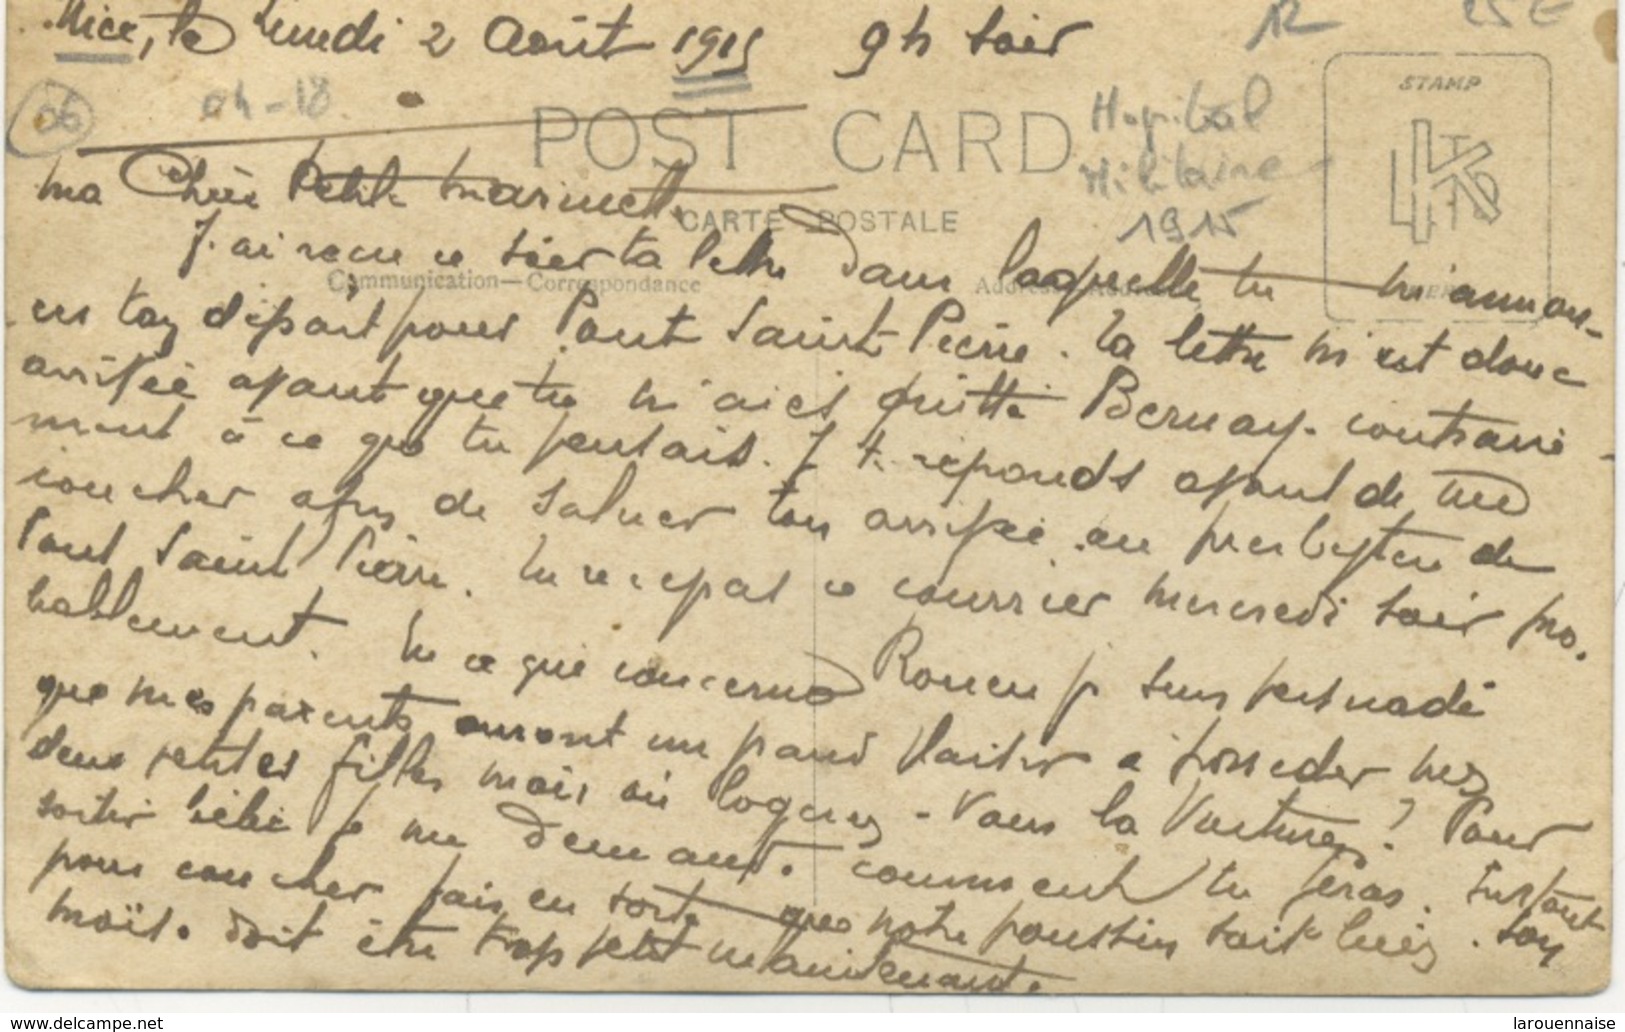 Nice, le Lundi 2 Août 1915 9h soir
12
25€
06
04-18
Hopital
Militaire
1915
POST CARD
STAMP
CARTE POSTALE
Communication—Correspondance
Address
ma Chère Petite Marinette
J'ai reçu ce soir ta lettre dans laquelle tu m'annon-
ces ton départ pour Pont Saint Pierre. Ta lettre m'est donc
arrivée avant que tu n'aies quitté Bernay. contraire-
ment à ce que tu pensais. Je te réponds avant de me
coucher afin de saluer ton arrivée au presbytère de
Pont Saint Pierre. Tu recevras ce courrier mercredi soir pro-
bablement. En ce qui concerne Rouen je suis persuadé
que mes parents auront un grand plaisir à posséder mes
deux petites filles mais où logerez-vous la Voiture? Pour
sortir bébé je me demande comment tu feras. Surtout
pour coucher fais en sorte que notre poussin soit bien. Son
moïse doit être trop petit maintenant.
www.delcampe.net
larouennaise